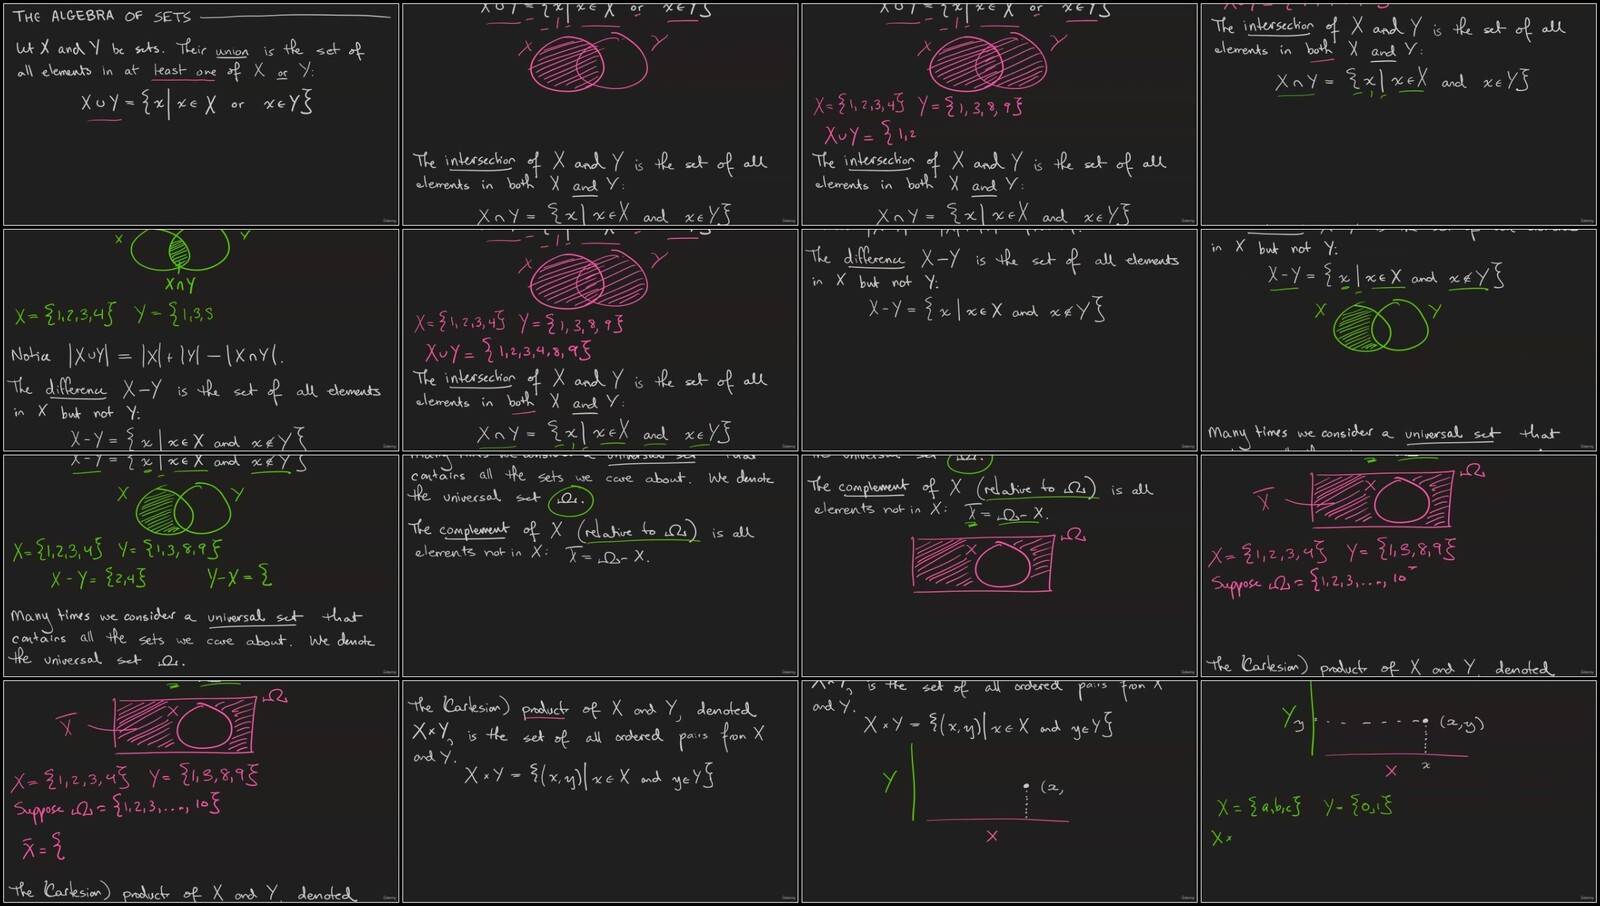 THE ALGEBRA OF SETS
Let X and Y be sets. Their union is the set of
all elements in at least one of X or Y:
X∪Y = {x | x∈X or x∈Y}
X∪Y = {x | x∈X or x∈Y}
X Y
The intersection of X and Y is the set of all
elements in both X and Y:
X∩Y = {x | x∈X and x∈Y}
X∪Y = {x | x∈X or x∈Y}
X Y
X = {1,2,3,4} Y = {1,3,8,9}
X∪Y = {1,2
The intersection of X and Y is the set of all
elements in both X and Y:
X∩Y = {x | x∈X and x∈Y}
The intersection of X and Y is the set of all
elements in both X and Y:
X∩Y = {x | x∈X and x∈Y}
X Y
X∩Y
X = {1,2,3,4} Y = {1,3,8
Notice |X∪Y| = |X| + |Y| - |X∩Y|.
The difference X-Y is the set of all elements
in X but not Y:
X-Y = {x | x∈X and x∉Y}
X Y
X = {1,2,3,4} Y = {1,3,8,9}
X∪Y = {1,2,3,4,8,9}
The intersection of X and Y is the set of all
elements in both X and Y:
X∩Y = {x | x∈X and x∈Y}
The difference X-Y is the set of all elements
in X but not Y:
X-Y = {x | x∈X and x∉Y}
in X but not Y:
X-Y = {x | x∈X and x∉Y}
X Y
Many times we consider a universal set that
X-Y = {x | x∈X and x∉Y}
X Y
X = {1,2,3,4} Y = {1,3,8,9}
X-Y = {2,4} Y-X = {
Many times we consider a universal set that
contains all the sets we care about. We denote
the universal set Ω.
Many times we consider a universal set that
contains all the sets we care about. We denote
the universal set Ω.
The complement of X (relative to Ω) is all
elements not in X: X̅ = Ω - X.
the universal set Ω.
The complement of X (relative to Ω) is all
elements not in X: X̅ = Ω - X.
X Ω
Ω
X̅ X
X = {1,2,3,4} Y = {1,3,8,9}
Suppose Ω = {1,2,3,..., 10
The (Cartesian) product of X and Y, denoted
Ω
X̅ X
X = {1,2,3,4} Y = {1,3,8,9}
Suppose Ω = {1,2,3,..., 10}
X̅ = {
The (Cartesian) product of X and Y, denoted
The (Cartesian) product of X and Y, denoted
X×Y, is the set of all ordered pairs from X
and Y.
X×Y = {(x,y) | x∈X and y∈Y}
X×Y, is the set of all ordered pairs from X
and Y.
X×Y = {(x,y) | x∈X and y∈Y}
Y (x,
X
Y y (x,y)
X x
X = {a,b,c} Y = {0,1}
X×